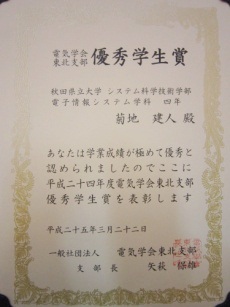 電気学会
東北支部 優秀学生賞
秋田県立大学 システム科学技術学部
電子情報システム学科 四年
菊地 建人 殿
あなたは学業成績が極めて優秀と
認められましたのでここに
平成二十四年度電気学会東北支部
優秀学生賞を表彰します
平成二十五年三月二十二日
一般社団法人 電気学会東北支部
支部長 矢萩 保雄